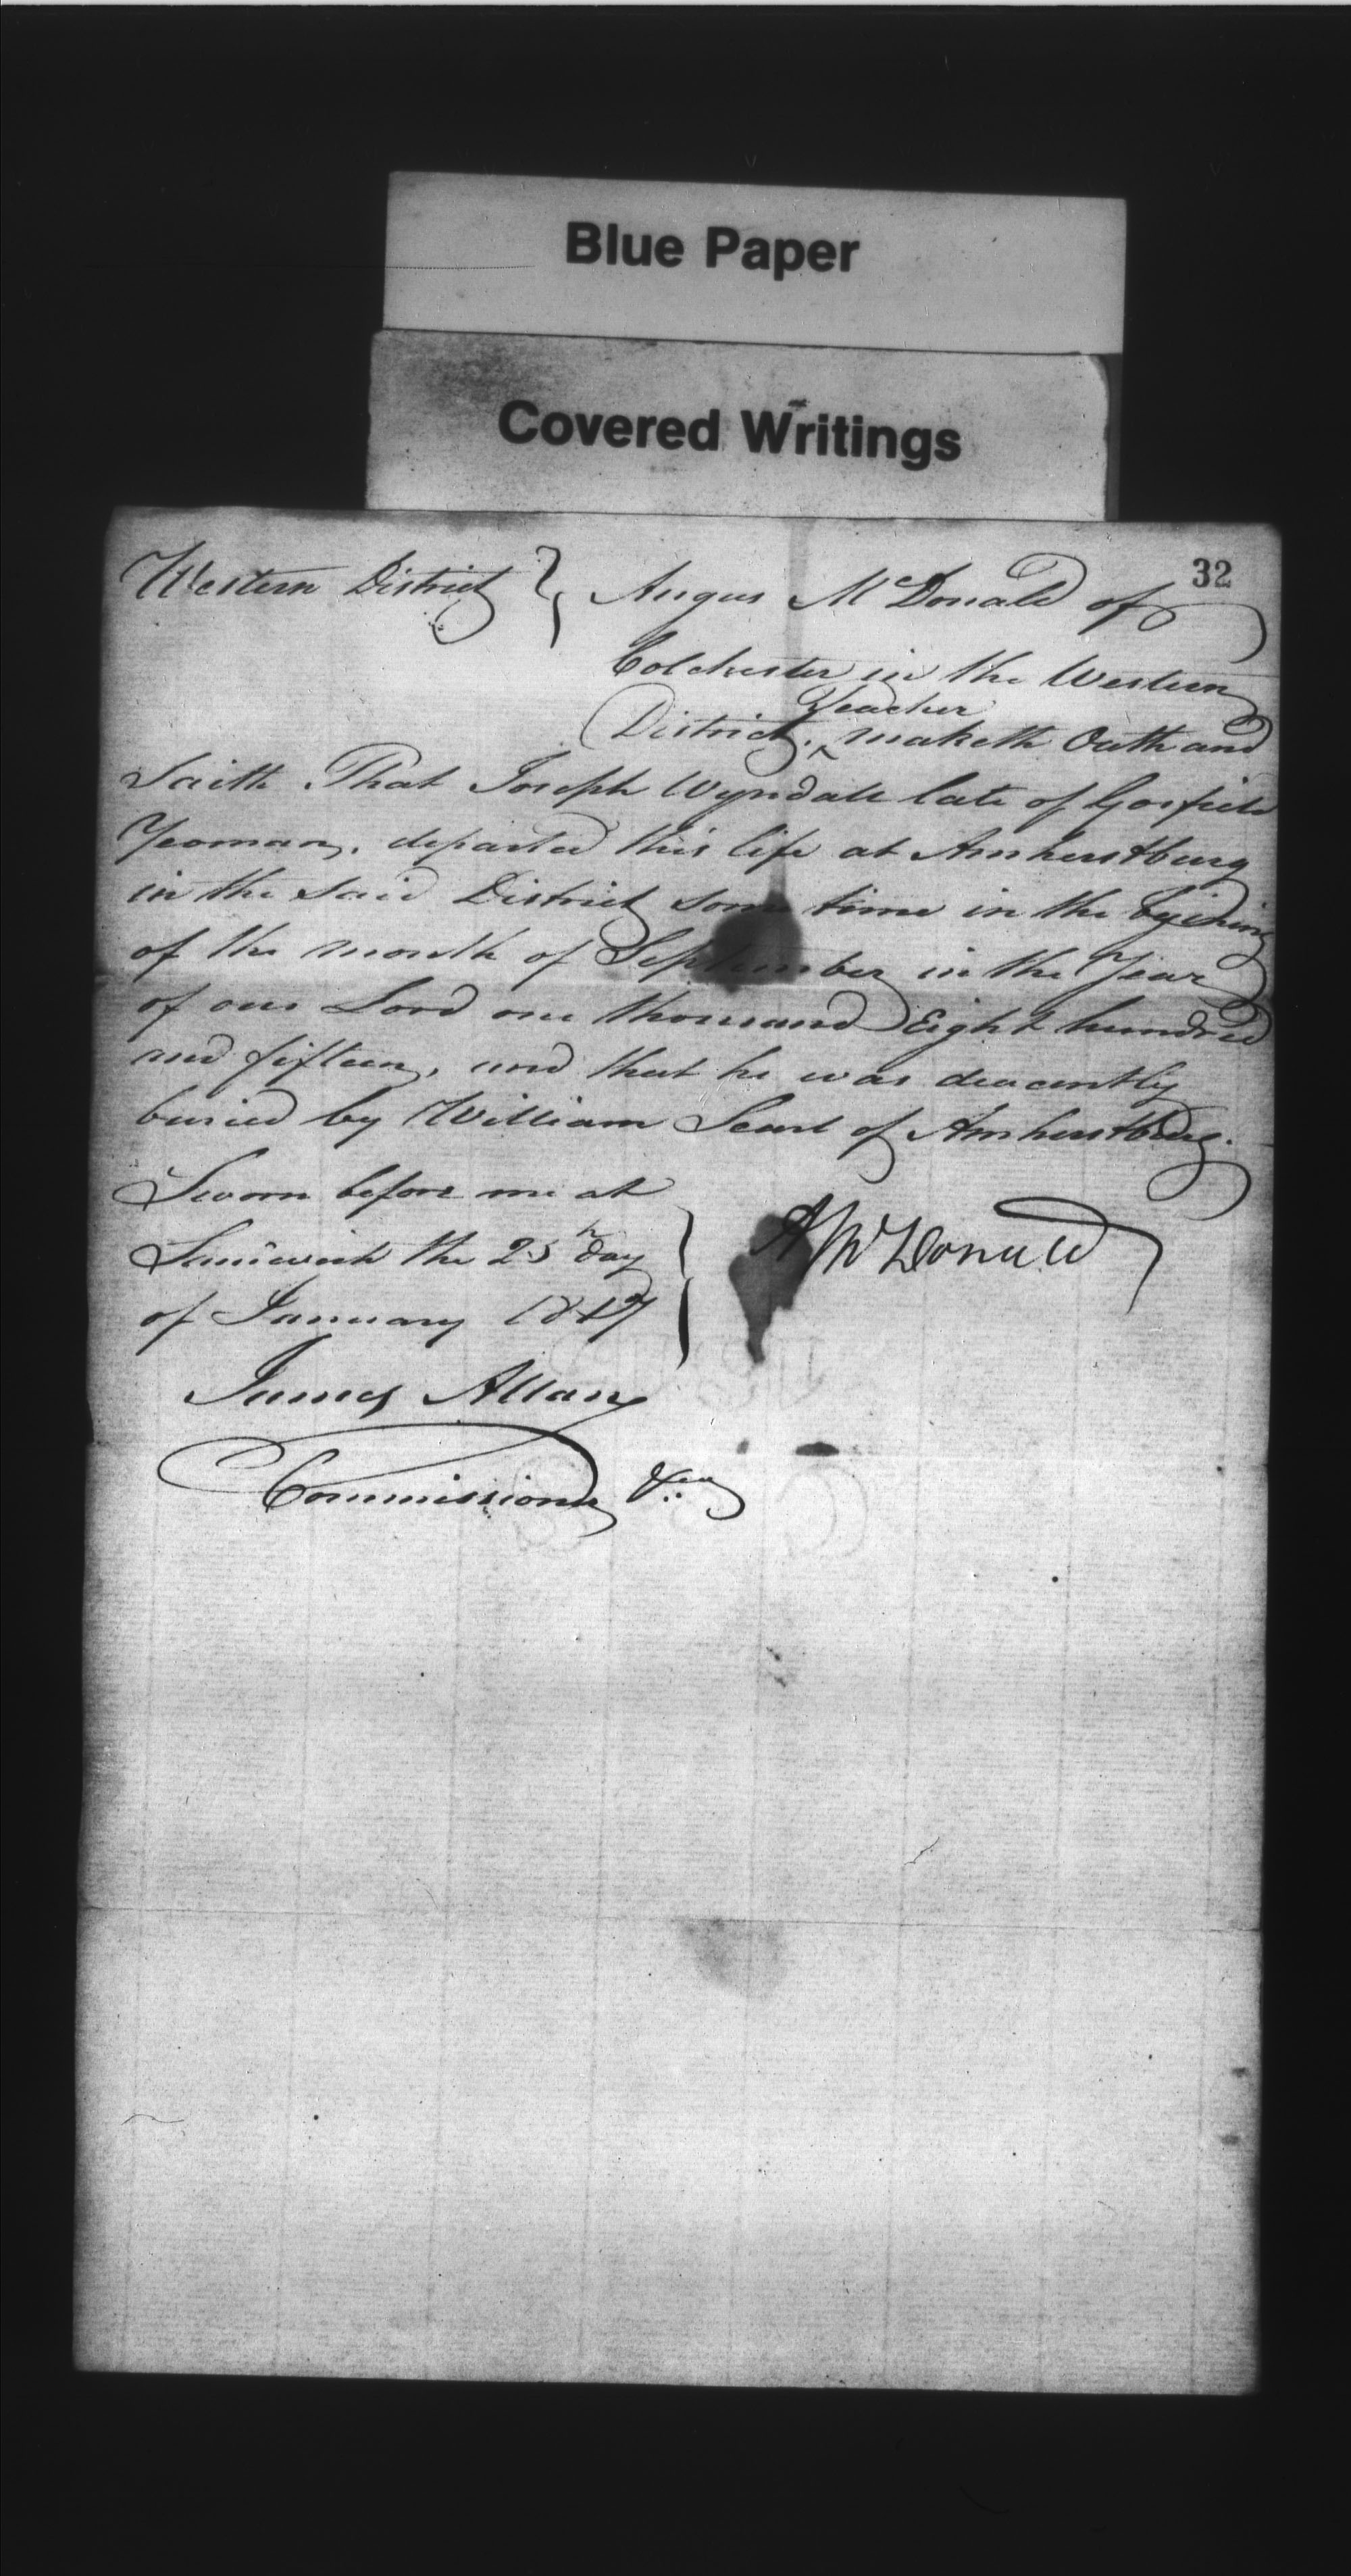 Blue Paper
Covered Writings
32
Western District } Angus McDonald of
Colchester in the Western
Teacher
District, ^ maketh Oath and
Saith That Joseph Wyndall late of Gosfield
Yeoman, departed this life at Amherstburg
in the said District some time in the
of the month of September in the Year
of our Lord one thousand Eight hundred
and fifteen, and that he was deacently
buried by William Searl of Amherstburg.
Sworn before me at
Sandwich the 25th day
of January 1817
A McDonald
James Allan
Commissioner &c